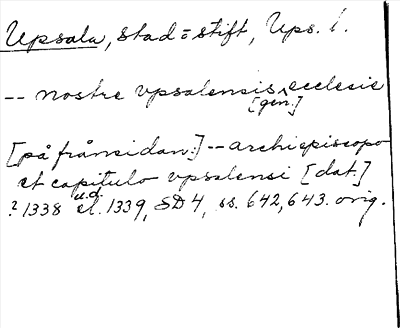 Upsala, stad = stift, Ups. l.
-- nostre vpsalensis ecclesie
[gen.]
[på frånsidan:] -- archiepiscopo
et capitulo vpsalensi [dat.]
? 1338 u.d. el. 1339, SD 4, ss. 642, 643. orig.